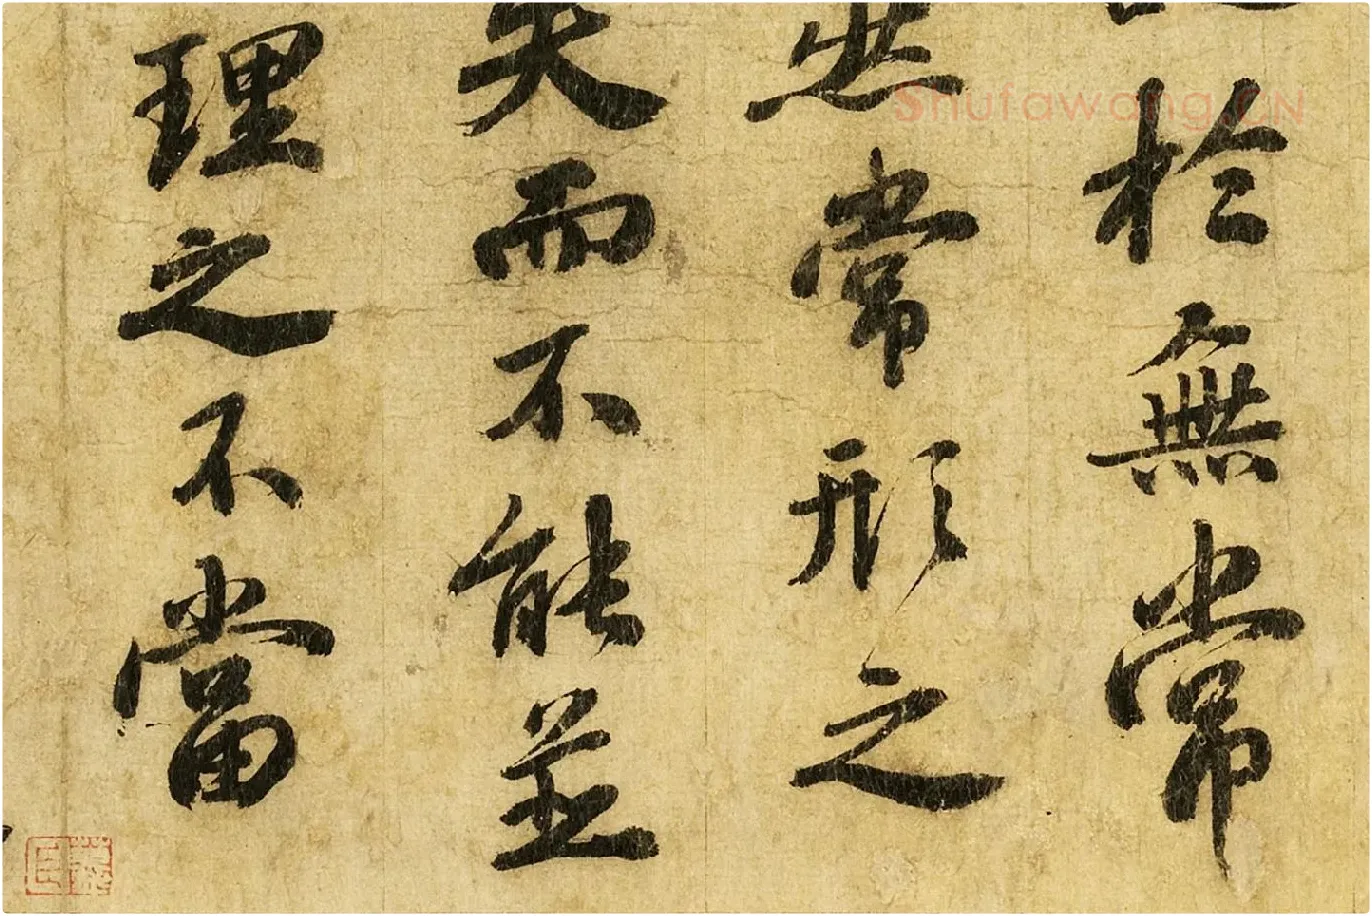 於無常
然常形之
失而不能並
理之不當
Shufawang.CN